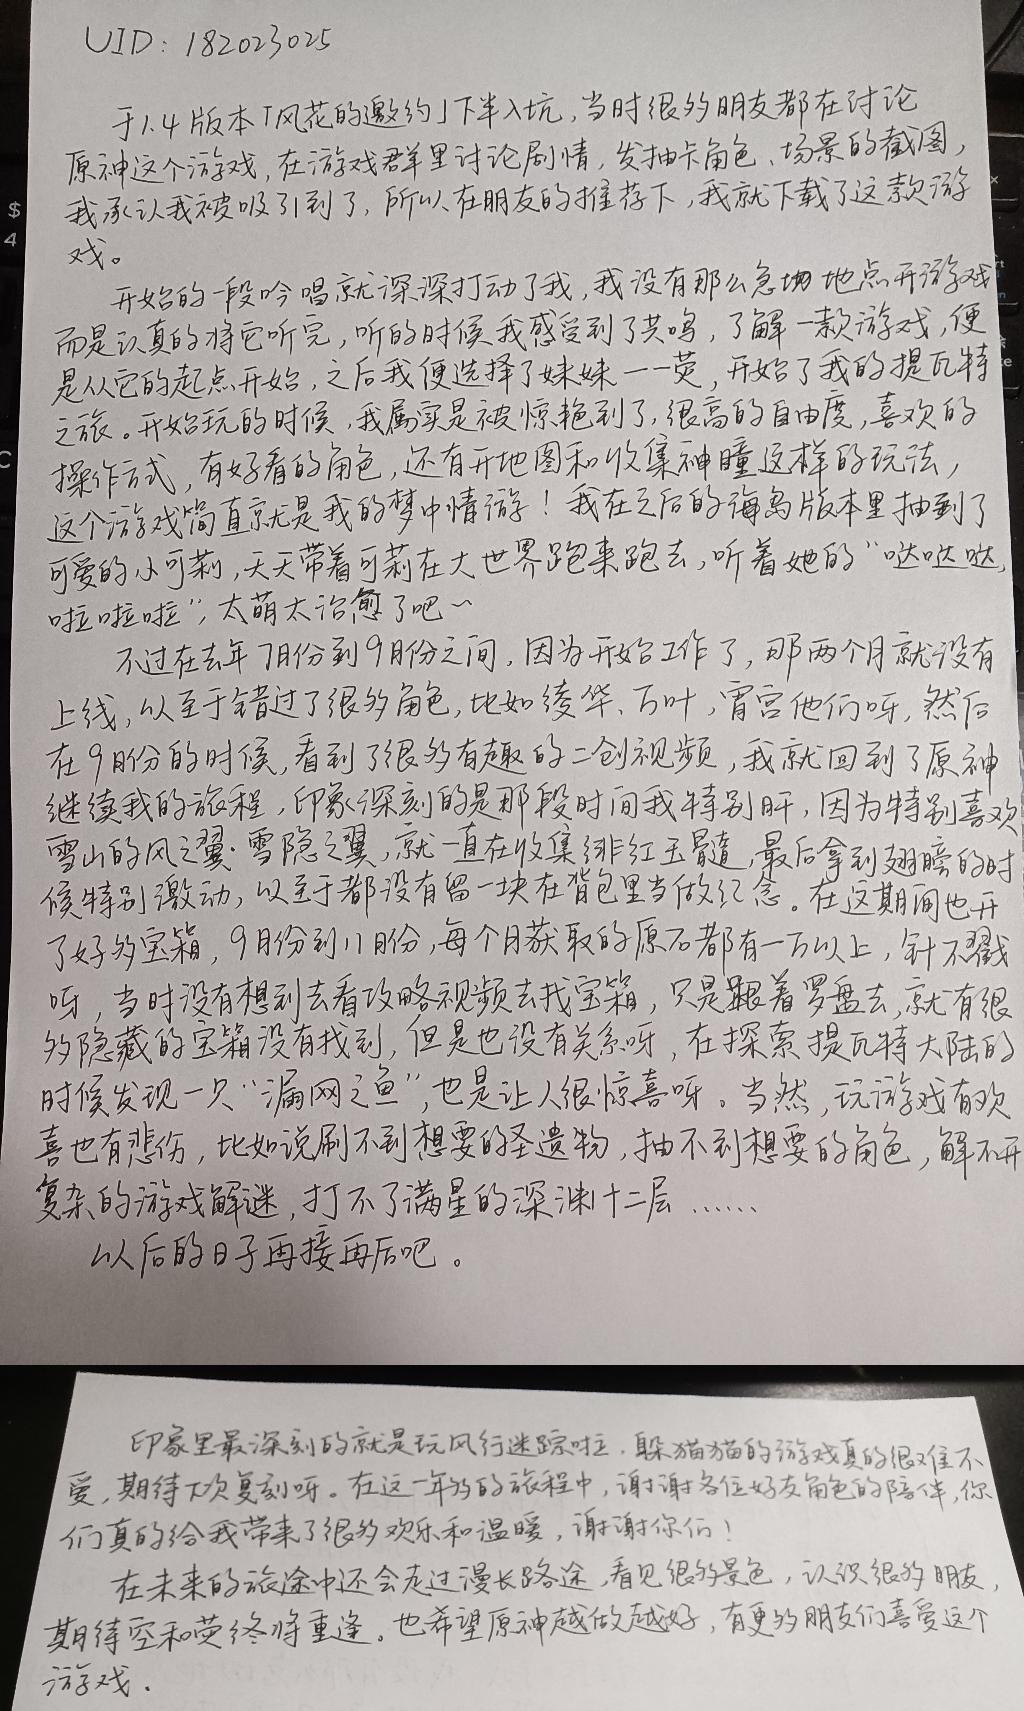 UID：182023025
于1.4版本「风花的邀约」下半入坑，当时很多朋友都在讨论
原神这个游戏，在游戏群里讨论剧情，发抽卡角色、场景的截图，
我承认我被吸引到了，所以在朋友的推荐下，我就下载了这款游
戏。
开始的一段吟唱就深深打动了我，我没有那么急切地点开游戏
而是认真的将它听完，听的时候我感受到了共鸣，了解一款游戏，便
是从它的起点开始，之后我便选择了妹妹——荧，开始了我的提瓦特
之旅。开始玩的时候，我属实是被惊艳到了，很高的自由度，喜欢的
操作方式，有好看的角色，还有开地图和收集神瞳这样的玩法，
这个游戏简直就是我的梦中情游！我在之后的海岛版本里抽到了
可爱的小可莉，天天带着可莉在大世界跑来跑去，听着她的“哒哒哒，
啦啦啦”，太萌太治愈了吧~
不过在去年7月份到9月份之间，因为开始工作了，那两个月就没有
上线，以至于错过了很多角色，比如绫华、万叶，宵宫他们呀，然后
在9月份的时候，看到了很多有趣的二创视频，我就回到了原神
继续我的旅程，印象深刻的是那段时间我特别肝，因为特别喜欢
雪山的风之翼·雪隐之翼，就一直在收集绯红玉髓，最后拿到翅膀的时
候特别激动，以至于都没有留一块在背包里当做纪念。在这期间也开
了好多宝箱，9月份到11月份，每个月获取的原石都有一万以上，针不戳
呀，当时没有想到去看攻略视频去找宝箱，只是跟着罗盘去，就有很
多隐藏的宝箱没有找到，但是也没有关系呀，在探索提瓦特大陆的
时候发现一只“漏网之鱼”，也是让人很惊喜呀。当然，玩游戏有欢
喜也有悲伤，比如说刷不到想要的圣遗物，抽不到想要的角色，解不开
复杂的游戏解谜，打不了满星的深渊十二层……
以后的日子再接再后吧。
印象里最深刻的就是玩风行迷踪啦，躲猫猫的游戏真的很难不
爱，期待下次复刻呀。在这一年多的旅程中，谢谢各位好友角色的陪伴，你
们真的给我带来了很多欢乐和温暖，谢谢你们！
在未来的旅途中还会走过漫长路途，看见很多景色，认识很多朋友，
期待空和荧终将重逢。也希望原神越做越好，有更多朋友们喜爱这个
游戏.